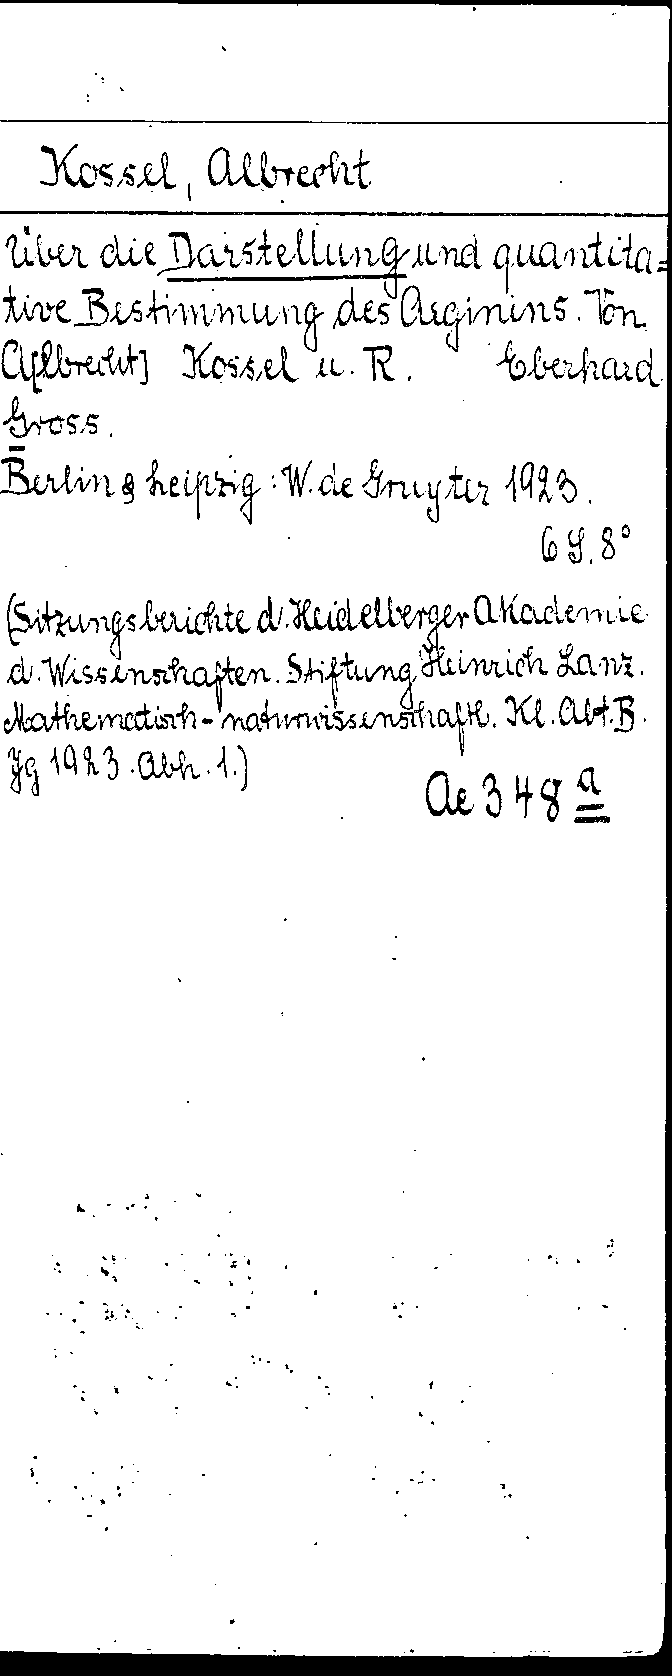 Kossel, Albrecht
Über die Darstellung und quantita=
tive Bestimmung des Arginins. Von
A[lbrecht] Kossel u. R. Eberhard
Gross.
Berlin & Leipzig: W. de Gruyter 1923.
6 S. 8°
(Sitzungsberichte d. Heidelberger Akademie
d. Wissenschaften. Stiftung Heinrich Lanz.
Mathematisch-naturwissenschaftl. Kl. Abt. B.
Jg 1923. Abh. 1.)
Ae 348 a